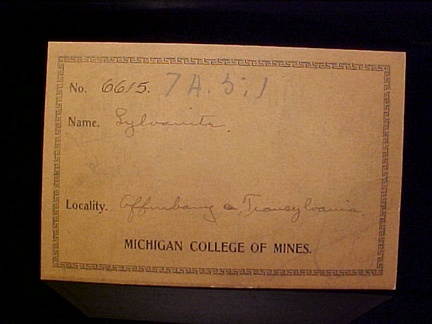 No. 6615. 7A.5;1
Name. Sylvanite.
Locality. Offenbanya, Transylvania
MICHIGAN COLLEGE OF MINES.